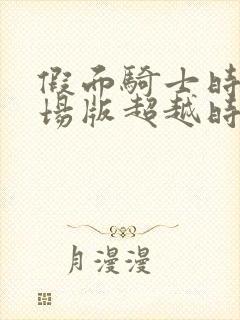 假面騎士時
場版超越時
月漫漫